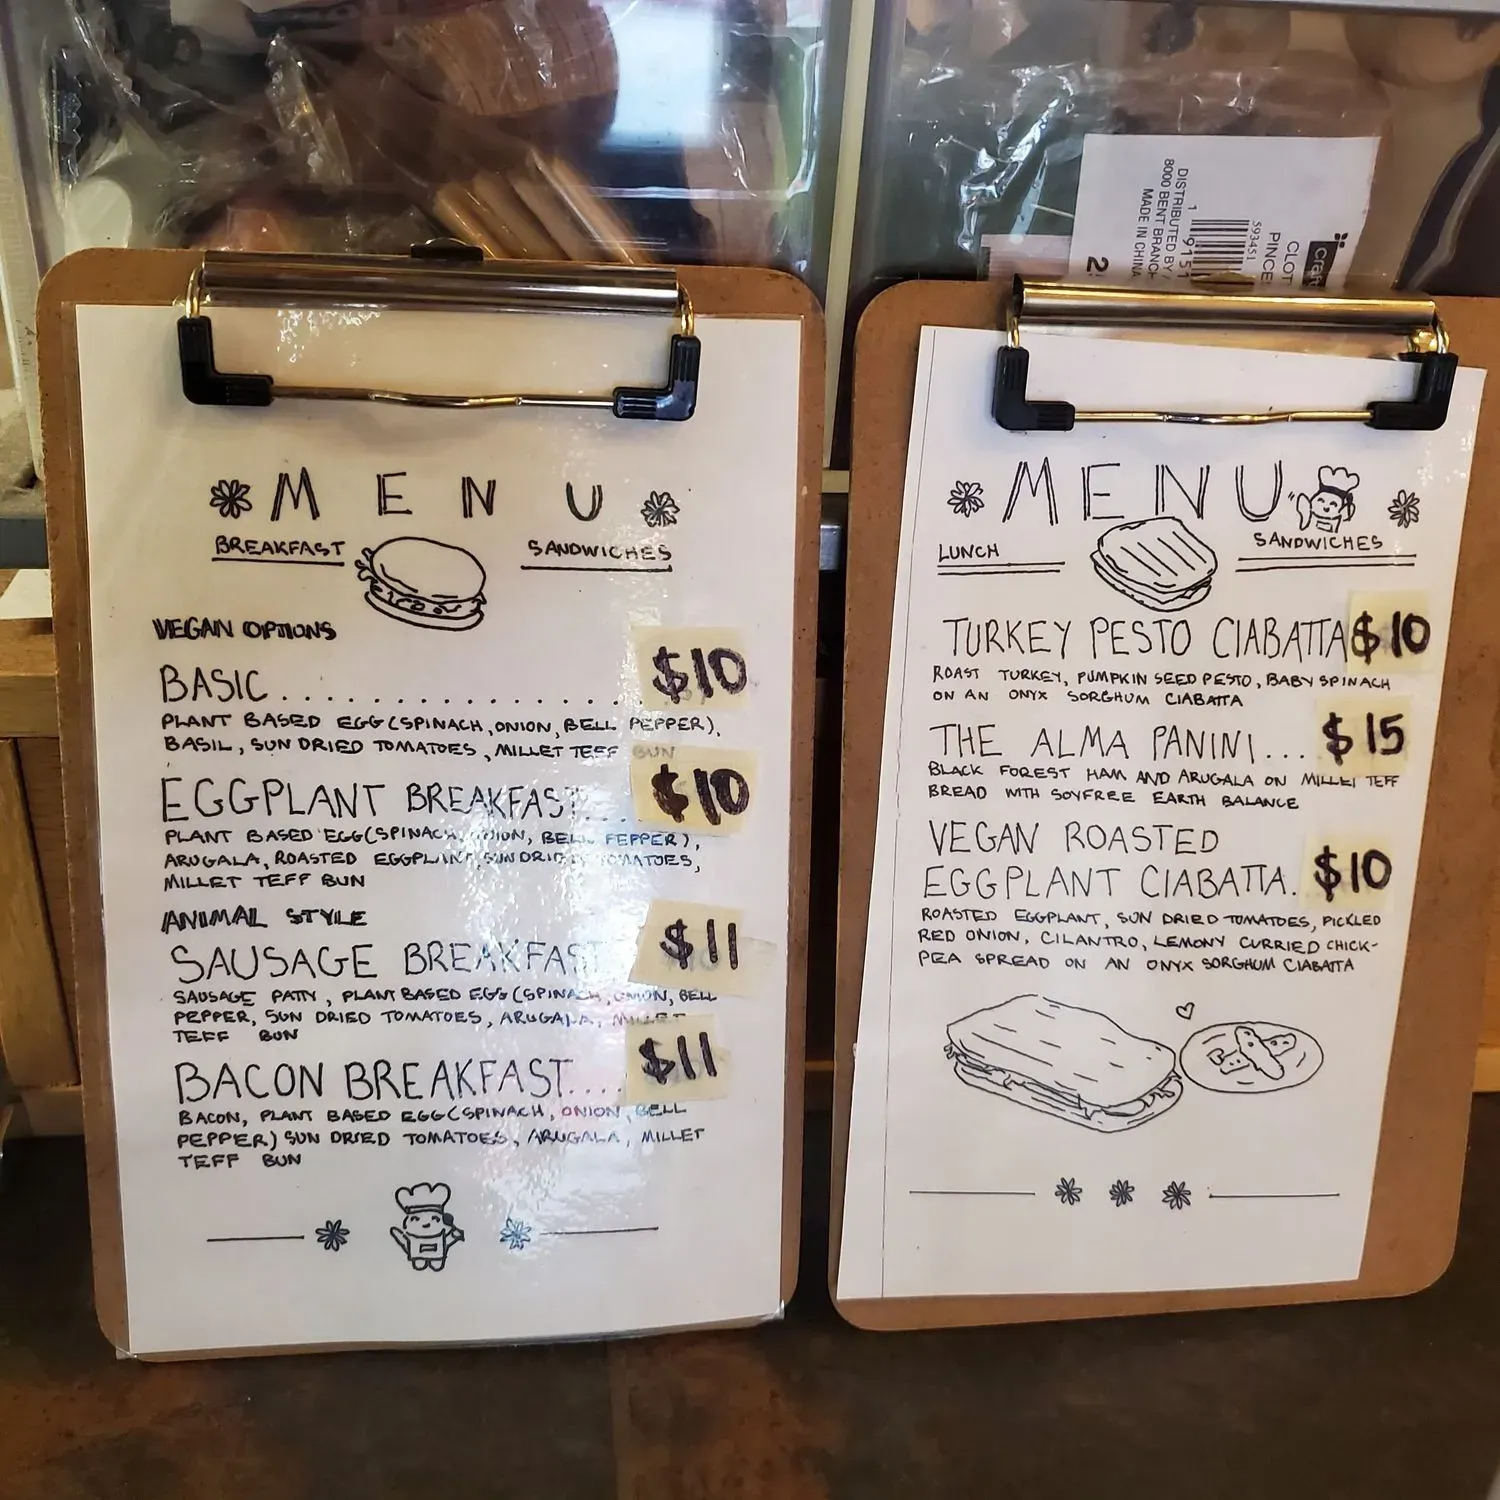 MENU
BREAKFAST SANDWICHES
VEGAN OPTIONS
BASIC.................... $10
PLANT BASED EGG (SPINACH, ONION, BELL PEPPER),
BASIL, SUN DRIED TOMATOES, MILLET TEFF BUN
EGGPLANT BREAKFAST.... $10
PLANT BASED EGG (SPINACH, ONION, BELL PEPPER),
ARUGALA, ROASTED EGGPLANT, SUN DRIED TOMATOES,
MILLET TEFF BUN
ANIMAL STYLE
SAUSAGE BREAKFAST $11
SAUSAGE PATTY, PLANT BASED EGG (SPINACH, ONION, BELL
PEPPER, SUN DRIED TOMATOES, ARUGALA, MILLET
TEFF BUN
BACON BREAKFAST.... $11
BACON, PLANT BASED EGG (SPINACH, ONION, BELL
PEPPER) SUN DRIED TOMATOES, ARUGALA, MILLET
TEFF BUN
MENU
LUNCH SANDWICHES
TURKEY PESTO CIABATTA $10
ROAST TURKEY, PUMPKIN SEED PESTO, BABY SPINACH
ON AN ONYX SORGHUM CIABATTA
THE ALMA PANINI... $15
BLACK FOREST HAM AND ARUGALA ON MILLET TEFF
BREAD WITH SOYFREE EARTH BALANCE
VEGAN ROASTED
EGGPLANT CIABATTA. $10
ROASTED EGGPLANT, SUN DRIED TOMATOES, PICKLED
RED ONION, CILANTRO, LEMONY CURRIED CHICK-
PEA SPREAD ON AN ONYX SORGHUM CIABATTA
DISTRIBUTED BY
8000 BENT BRANCH
MADE IN CHINA
593451